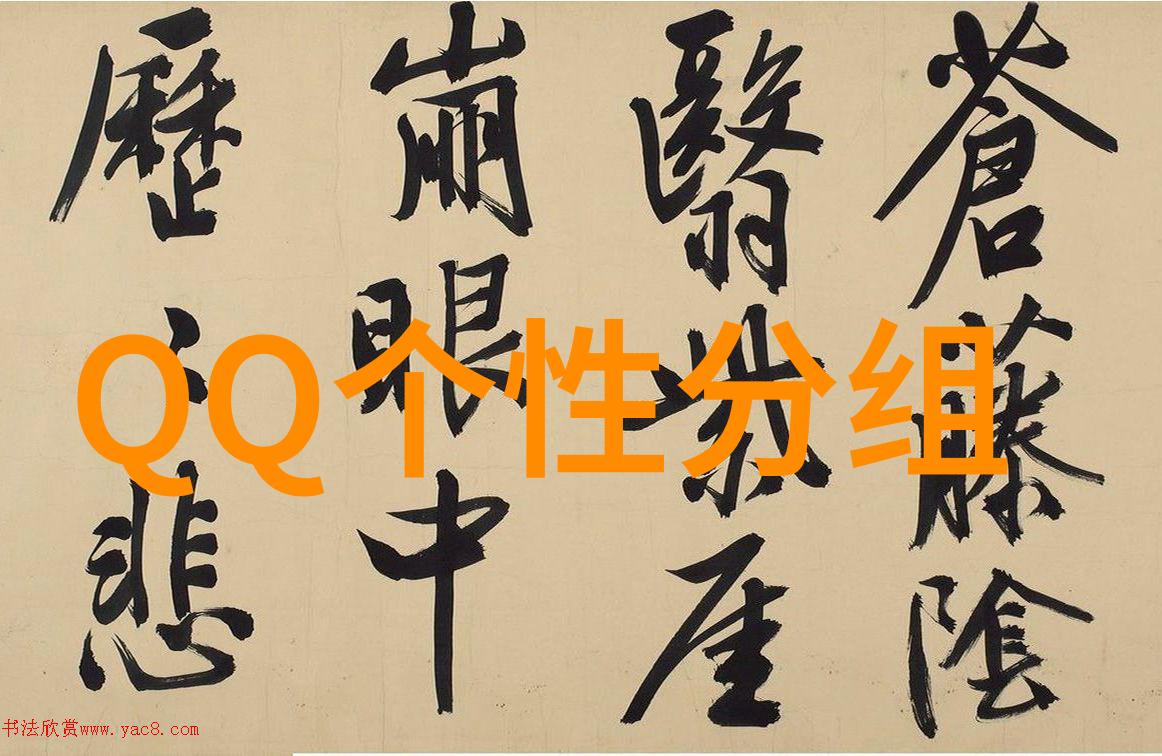 蒼藤陰
翳紫厓
崩眼中
歷〻悲
QQ个性分组
书法欣赏www.yac8.com